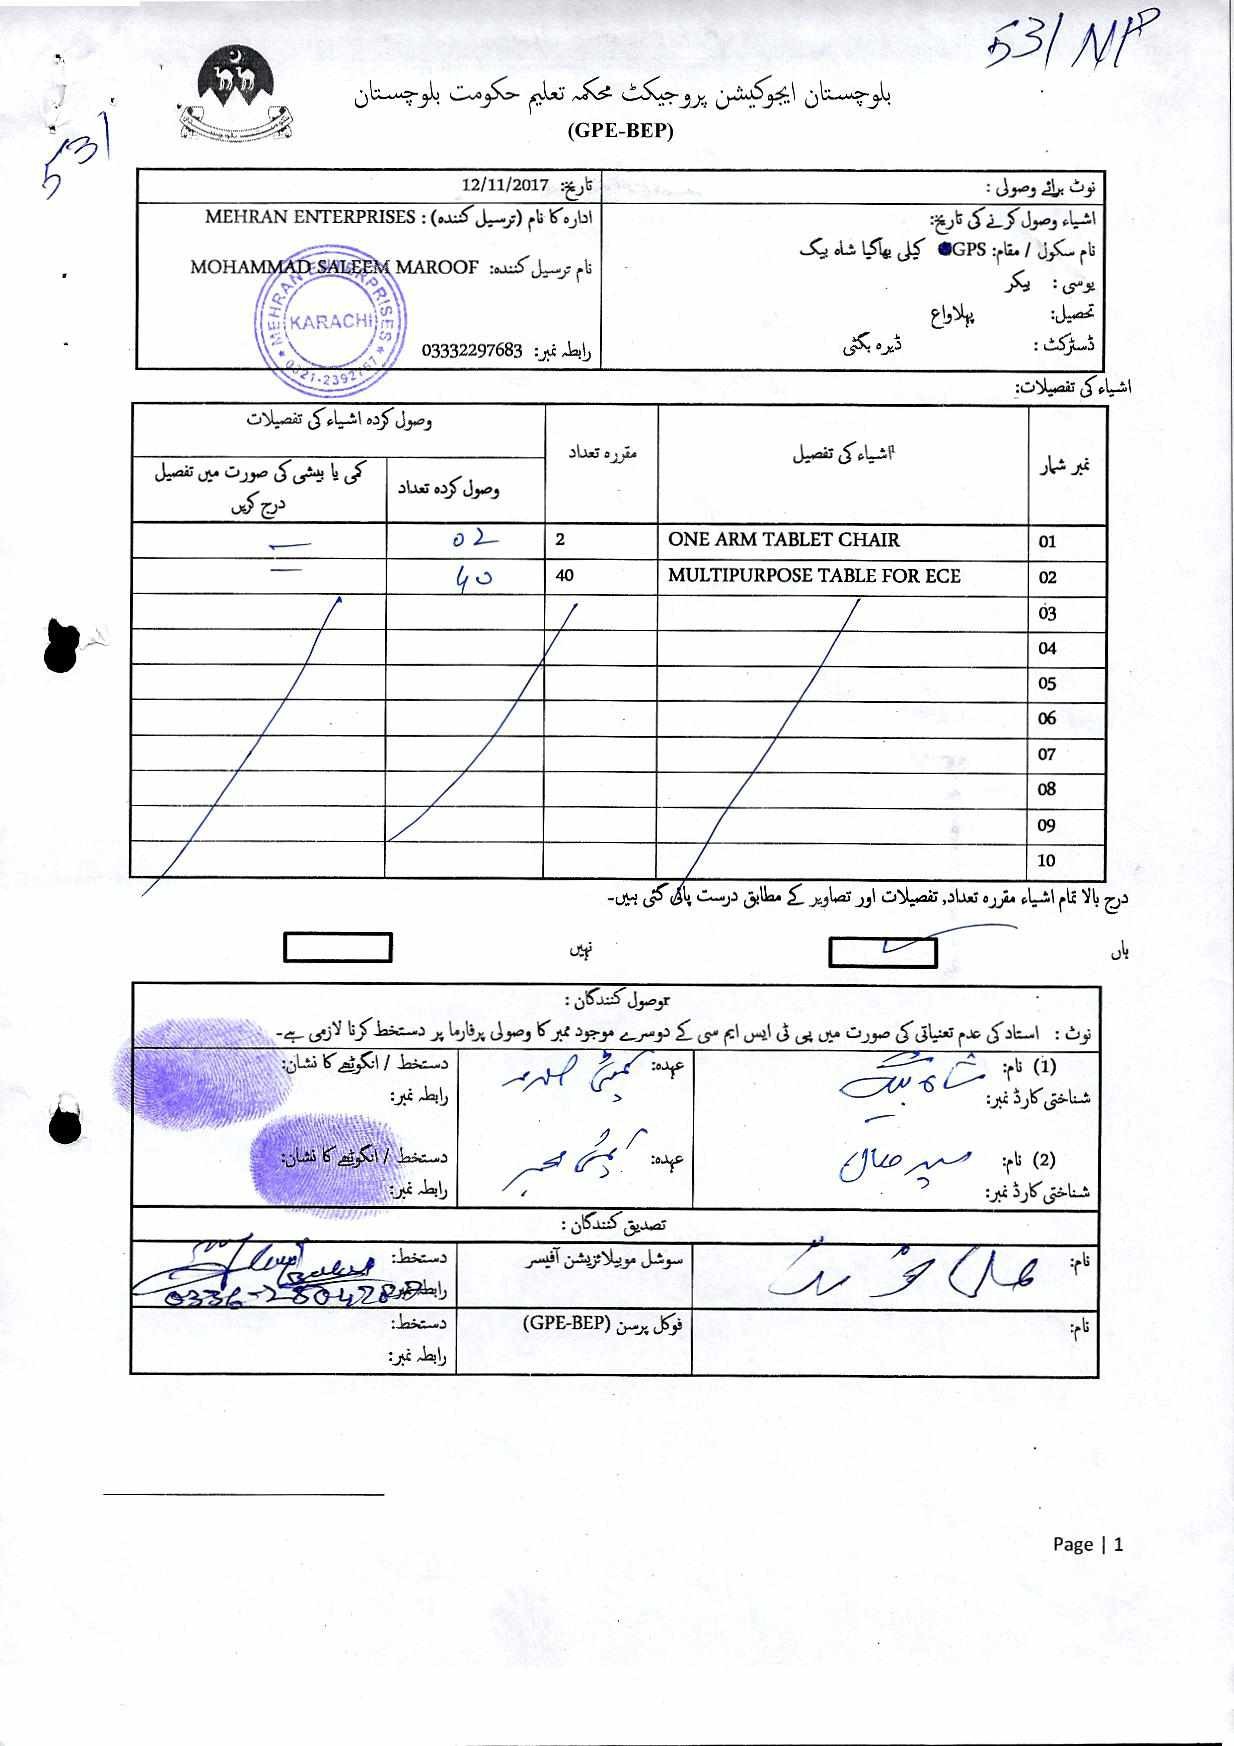 531 NP
531
بلوچستان ایجوکیشن پروجیکٹ محکمہ تعلیم حکومت بلوچستان
(GPE-BEP)
نوٹ برائے وصولی :
تاریخ: 12/11/2017
اشیاء وصول کرنے کی تاریخ:
نام سکول / مقام: GPS کیلی بھاگیا شاہ بیگ
یوسی : بیکر
تحصیل: پہلاواغ
ڈسٹرکٹ : ڈیرہ بگٹی
ادارہ کا نام (ترسیل کنندہ) : MEHRAN ENTERPRISES
نام ترسیل کنندہ: MOHAMMAD SALEEM MAROOF
رابطہ نمبر: 03332297683
MEHRAN ENTERPRISES
KARACHI
0321-2392767
اشیاء کی تفصیلات:
نمبر شمار
اشیاء کی تفصیل
مقررہ تعداد
وصول کردہ اشیاء کی تفصیلات
وصول کردہ تعداد
کمی یا بیشی کی صورت میں تفصیل
درج کریں
01 ONE ARM TABLET CHAIR 2 02
02 MULTIPURPOSE TABLE FOR ECE 40 40
03
04
05
06
07
08
09
10
درج بالا تمام اشیاء مقررہ تعداد, تفصیلات اور تصاویر کے مطابق درست پائی گئی ہیں۔
ہاں
نہیں
وصول کنندگان :
نوٹ : استاد کی عدم تعنیاتی کی صورت میں پی ٹی ایس ایم سی کے دوسرے موجود ممبر کا وصولی پرفارما پر دستخط کرنا لازمی ہے۔
(1) نام: شاہ بیگ
شناختی کارڈ نمبر:
عہدہ:
دستخط / انگوٹھے کا نشان:
رابطہ نمبر:
(2) نام:
شناختی کارڈ نمبر:
عہدہ:
دستخط / انگوٹھے کا نشان:
رابطہ نمبر:
تصدیق کنندگان :
نام:
سوشل موبیلائزیشن آفیسر
دستخط:
رابطہ نمبر: 0336-2804288
نام:
فوکل پرسن (GPE-BEP)
دستخط:
رابطہ نمبر:
Page | 1